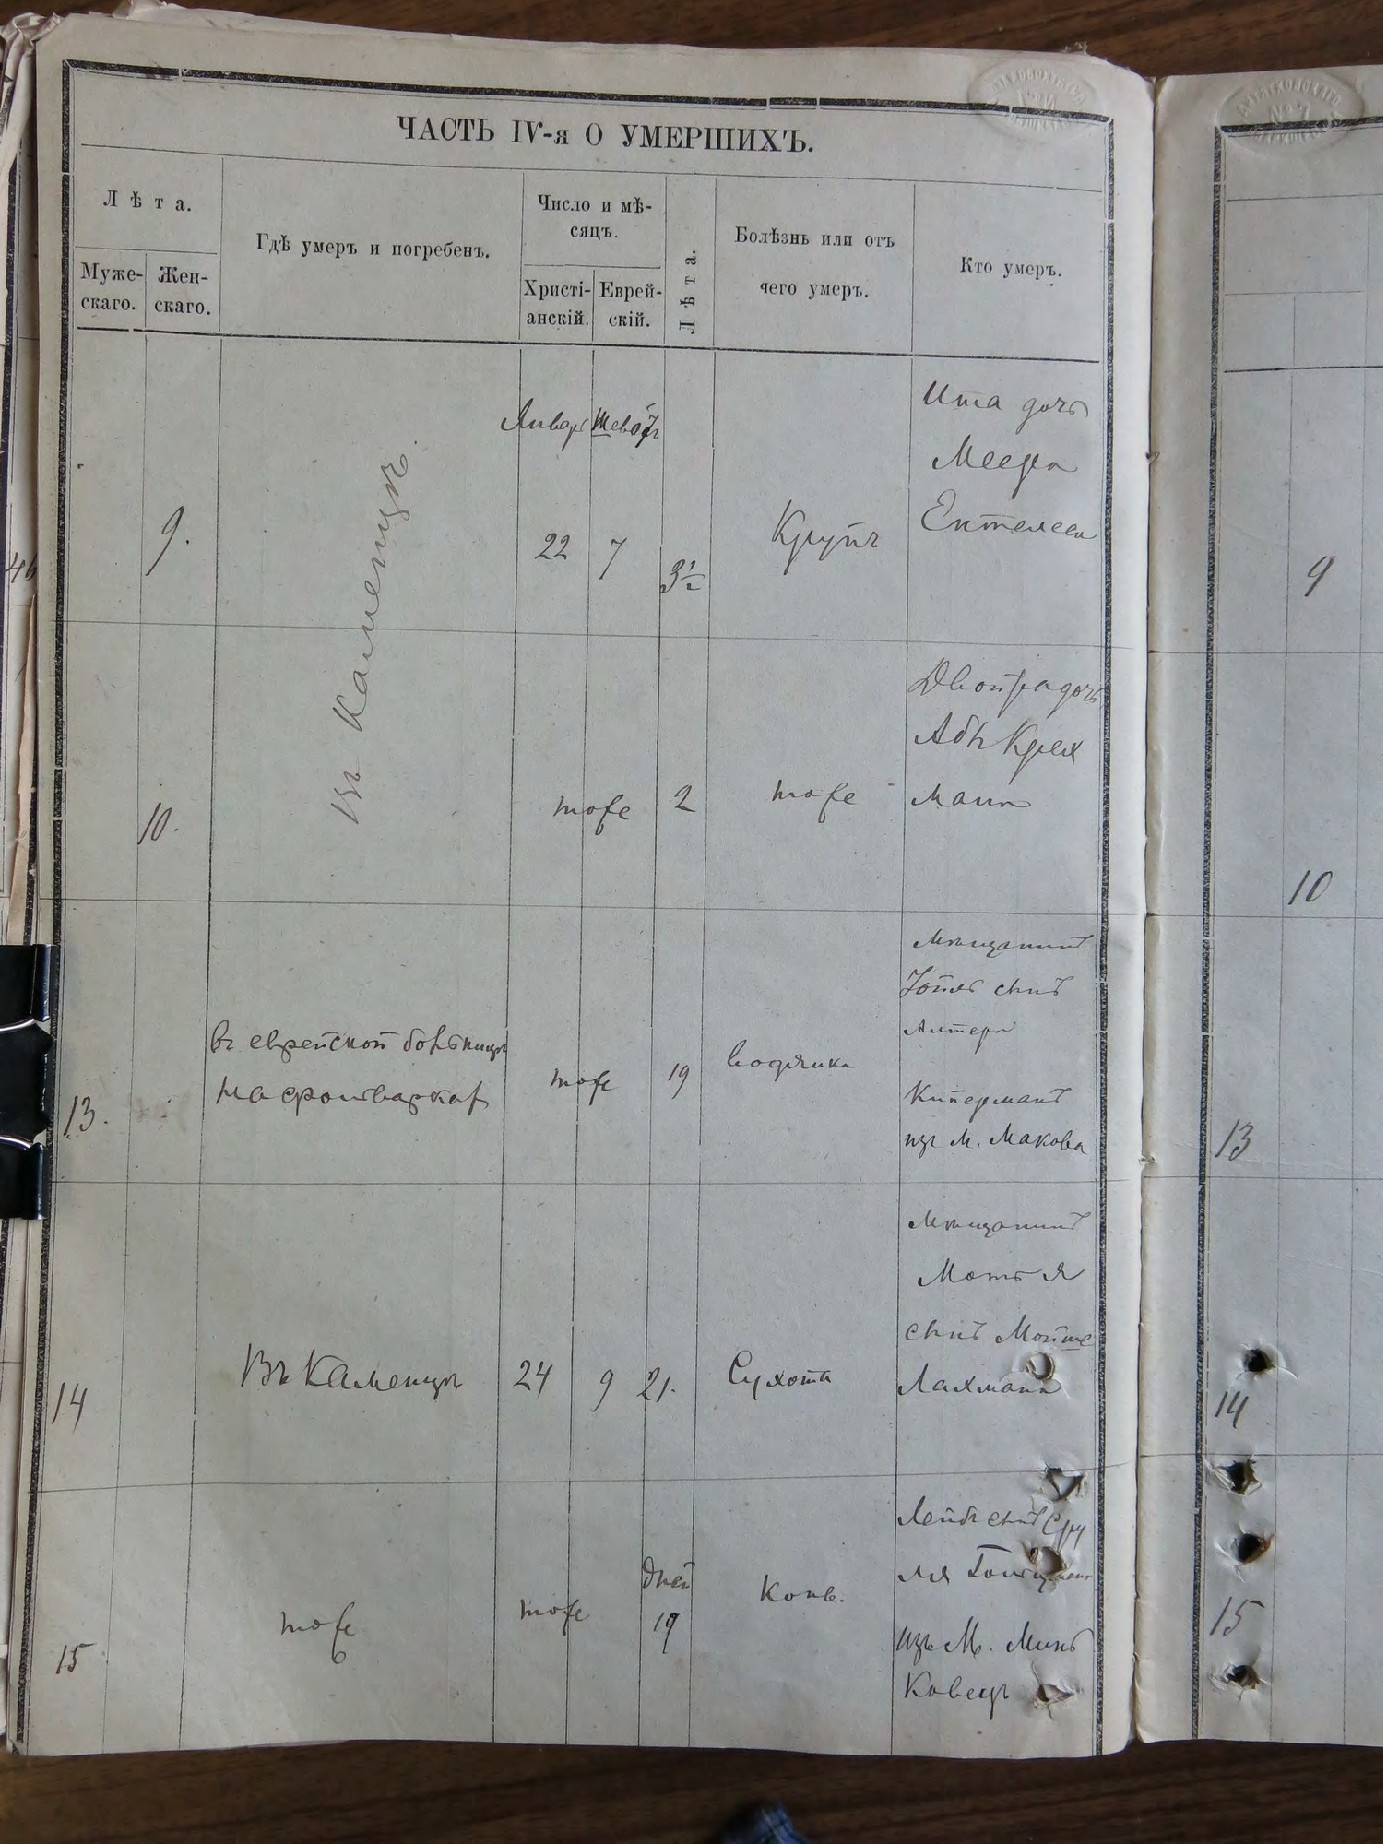 ЧАСТЬ IV-я О УМЕРШИХЪ.
Лѣта.
Муже-
скаго.
Жен-
скаго.
Гдѣ умеръ и погребенъ.
Число и мѣ-
сяцъ.
Христі-
анскій.
Еврей-
скій.
Лѣта.
Болѣзнь или отъ
чего умеръ.
Кто умеръ.
9.
въ Каменцѣ.
Январь
22
Шеватъ
7
3½
Крупъ
Ита дочь
Меера
10.
тоже
2
тоже
Двойра дочь
Абы Крех
мана
13.
въ еврейской больницѣ
на фольварках
тоже
19
водянка
мѣщанинъ
Іойль сынъ
Алтера
Киперманъ
изъ м. Макова
14
Въ Каменцѣ
24
9
21.
Сухота
мѣщанинъ
Мотья
сынъ Мойше
Лахмана
15
тоже
тоже
дней
19
Конв.
Лейбъ сынъ Сру
ля
изъ М. Минь
Ковецъ
46
9
10
13
14
15